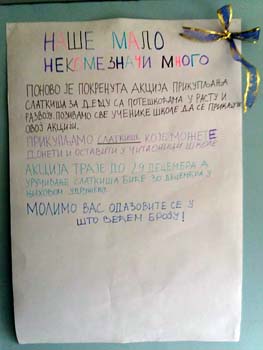 НАШЕ МАЛО
НЕКОМЕ ЗНАЧИ МНОГО
ПОНОВО ЈЕ ПОКРЕНУТА АКЦИЈА ПРИКУПЉАЊА
СЛАТКИША ЗА ДЕЦУ СА ПОТЕШКОЋАМА У РАСТУ И
РАЗВОЈУ. ПОЗИВАМО СВЕ УЧЕНИКЕ ШКОЛЕ ДА СЕ ПРИКЉУЧЕ
ОВОЈ АКЦИЈИ.
ПРИКУПЉАМО СЛАТКИШЕ КОЈЕ МОЖЕТЕ
ДОНЕТИ И ОСТАВИТИ У ЧИТАОНИЦИ ШКОЛЕ
АКЦИЈА ТРАЈЕ ДО 29 ДЕЦЕМБРА А
УРУЧИВАЊЕ СЛАТКИША БИЋЕ 30 ДЕЦЕМБРА У
ЊИХОВОМ УДРУЖЕЊУ.
МОЛИМО ВАС ОДАЗОВИТЕ СЕ У
ШТО ВЕЋЕМ БРОЈУ!